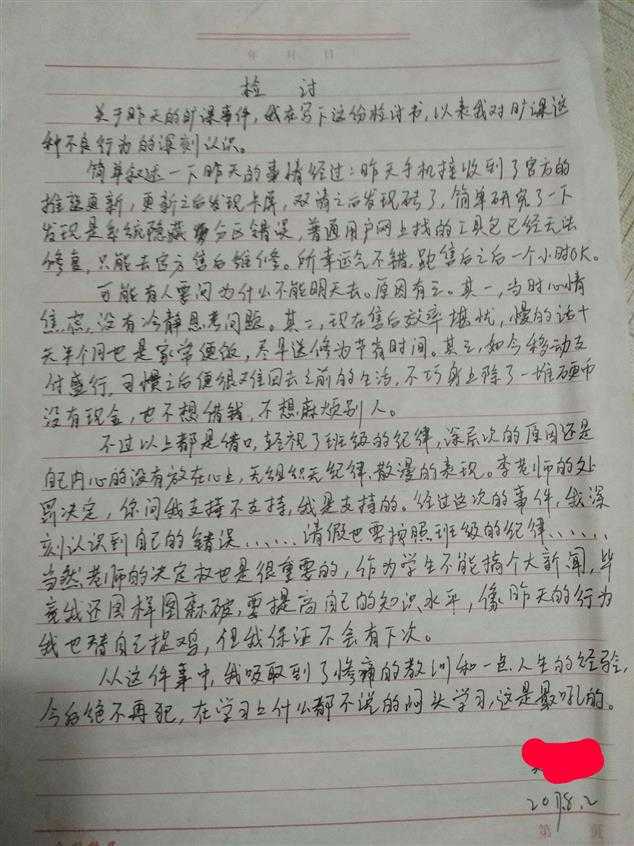 年 月 日
检 讨
关于昨天的旷课事件,我在写下这份检讨书,以表我对旷课这
种不良行为的深刻认识。
简单叙述一下昨天的事情经过:昨天手机接收到了官方的
推送更新,更新之后发现卡屏,双清之后发现砖了,简单研究了一下
发现是系统隐藏分区错误,普通用户网上找的工具包已经无法
修复,只能去官方售后维修。所幸运气不错,跑售后之后一个小时OK。
可能有人要问为什么不能明天去。原因有三。其一,当时心情
焦虑,没有冷静思考问题。其二,现在售后效率堪忧,慢的话十
天半个月也是家常便饭,尽早送修为节省时间。其三,如今移动支
付盛行,习惯之后便很难回去之前的生活,不巧身上除了一堆硬币
没有现金,也不想借钱,不想麻烦别人。
不过以上都是借口,轻视了班级的纪律,深层次的原因还是
自己内心的没有放在心上,无组织无纪律、散漫的表现。李老师的处
罚决定,你问我支持不支持,我是支持的。经过这次的事件,我深
刻认识到自己的错误......请假也要按照班级的纪律......
当然老师的决定权也是很重要的,作为学生不能搞个大新闻,毕
竟我还图样图森破,要提高自己的知识水平,像昨天的行为
我也替自己捉鸡,但我保证不会有下次。
从这件事中,我吸取到了惨痛的教训和一点人生的经验,
今后绝不再犯,在学习上什么都不说的闷头学习,这是最吼的。
2017.8.2
第 页